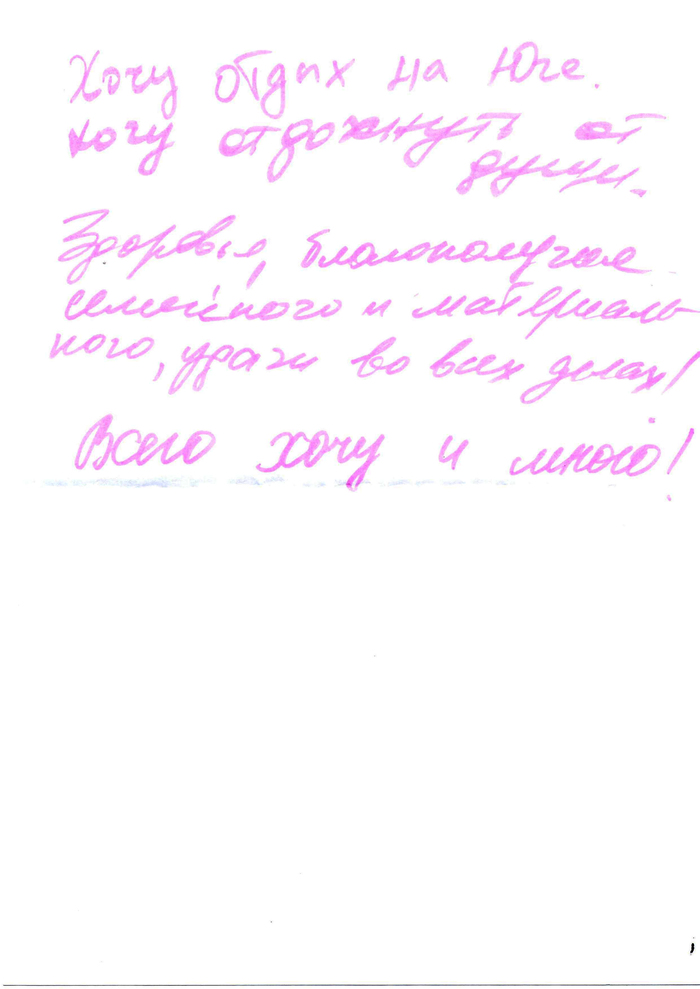 Хочу отдых на Юге.
хочу отдохнуть от
души.
Здоровья, благополучия
семейного и материаль-
ного, удачи во всех делах!
Всего хочу и много!